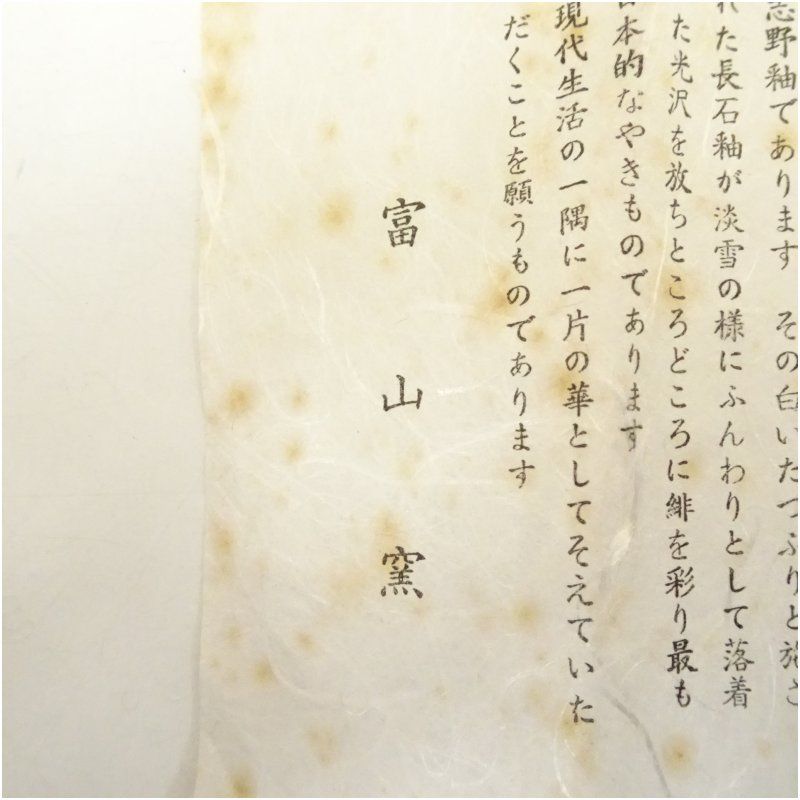 志野釉であります その白いたっぷりと施さ
れた長石釉が淡雪の様にふんわりとして落着
た光沢を放ちところどころに緋を彩り最も
日本的なやきものであります
現代生活の一隅に一片の華としてそえていた
だくことを願うものであります
富山窯